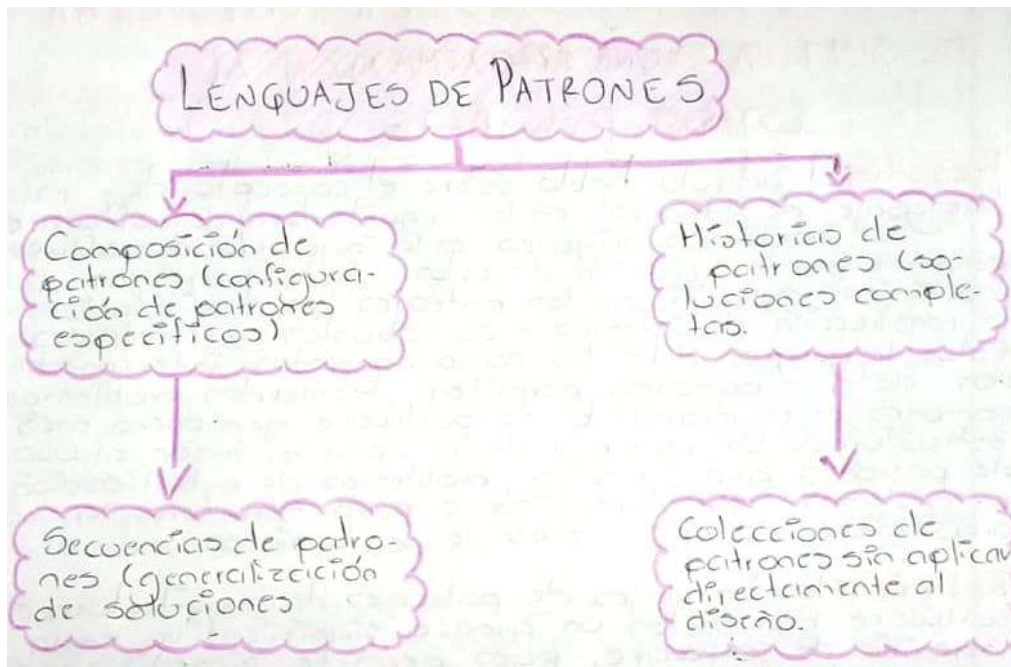 LENGUAJES DE PATRONES
Composición de
patrones (configura-
ción de patrones
específicos)
Historias de
patrones (so-
luciones comple-
tas.
Secuencias de patro-
nes (generalización
de soluciones
Colecciones de
patrones sin aplicar
directamente al
diseño.